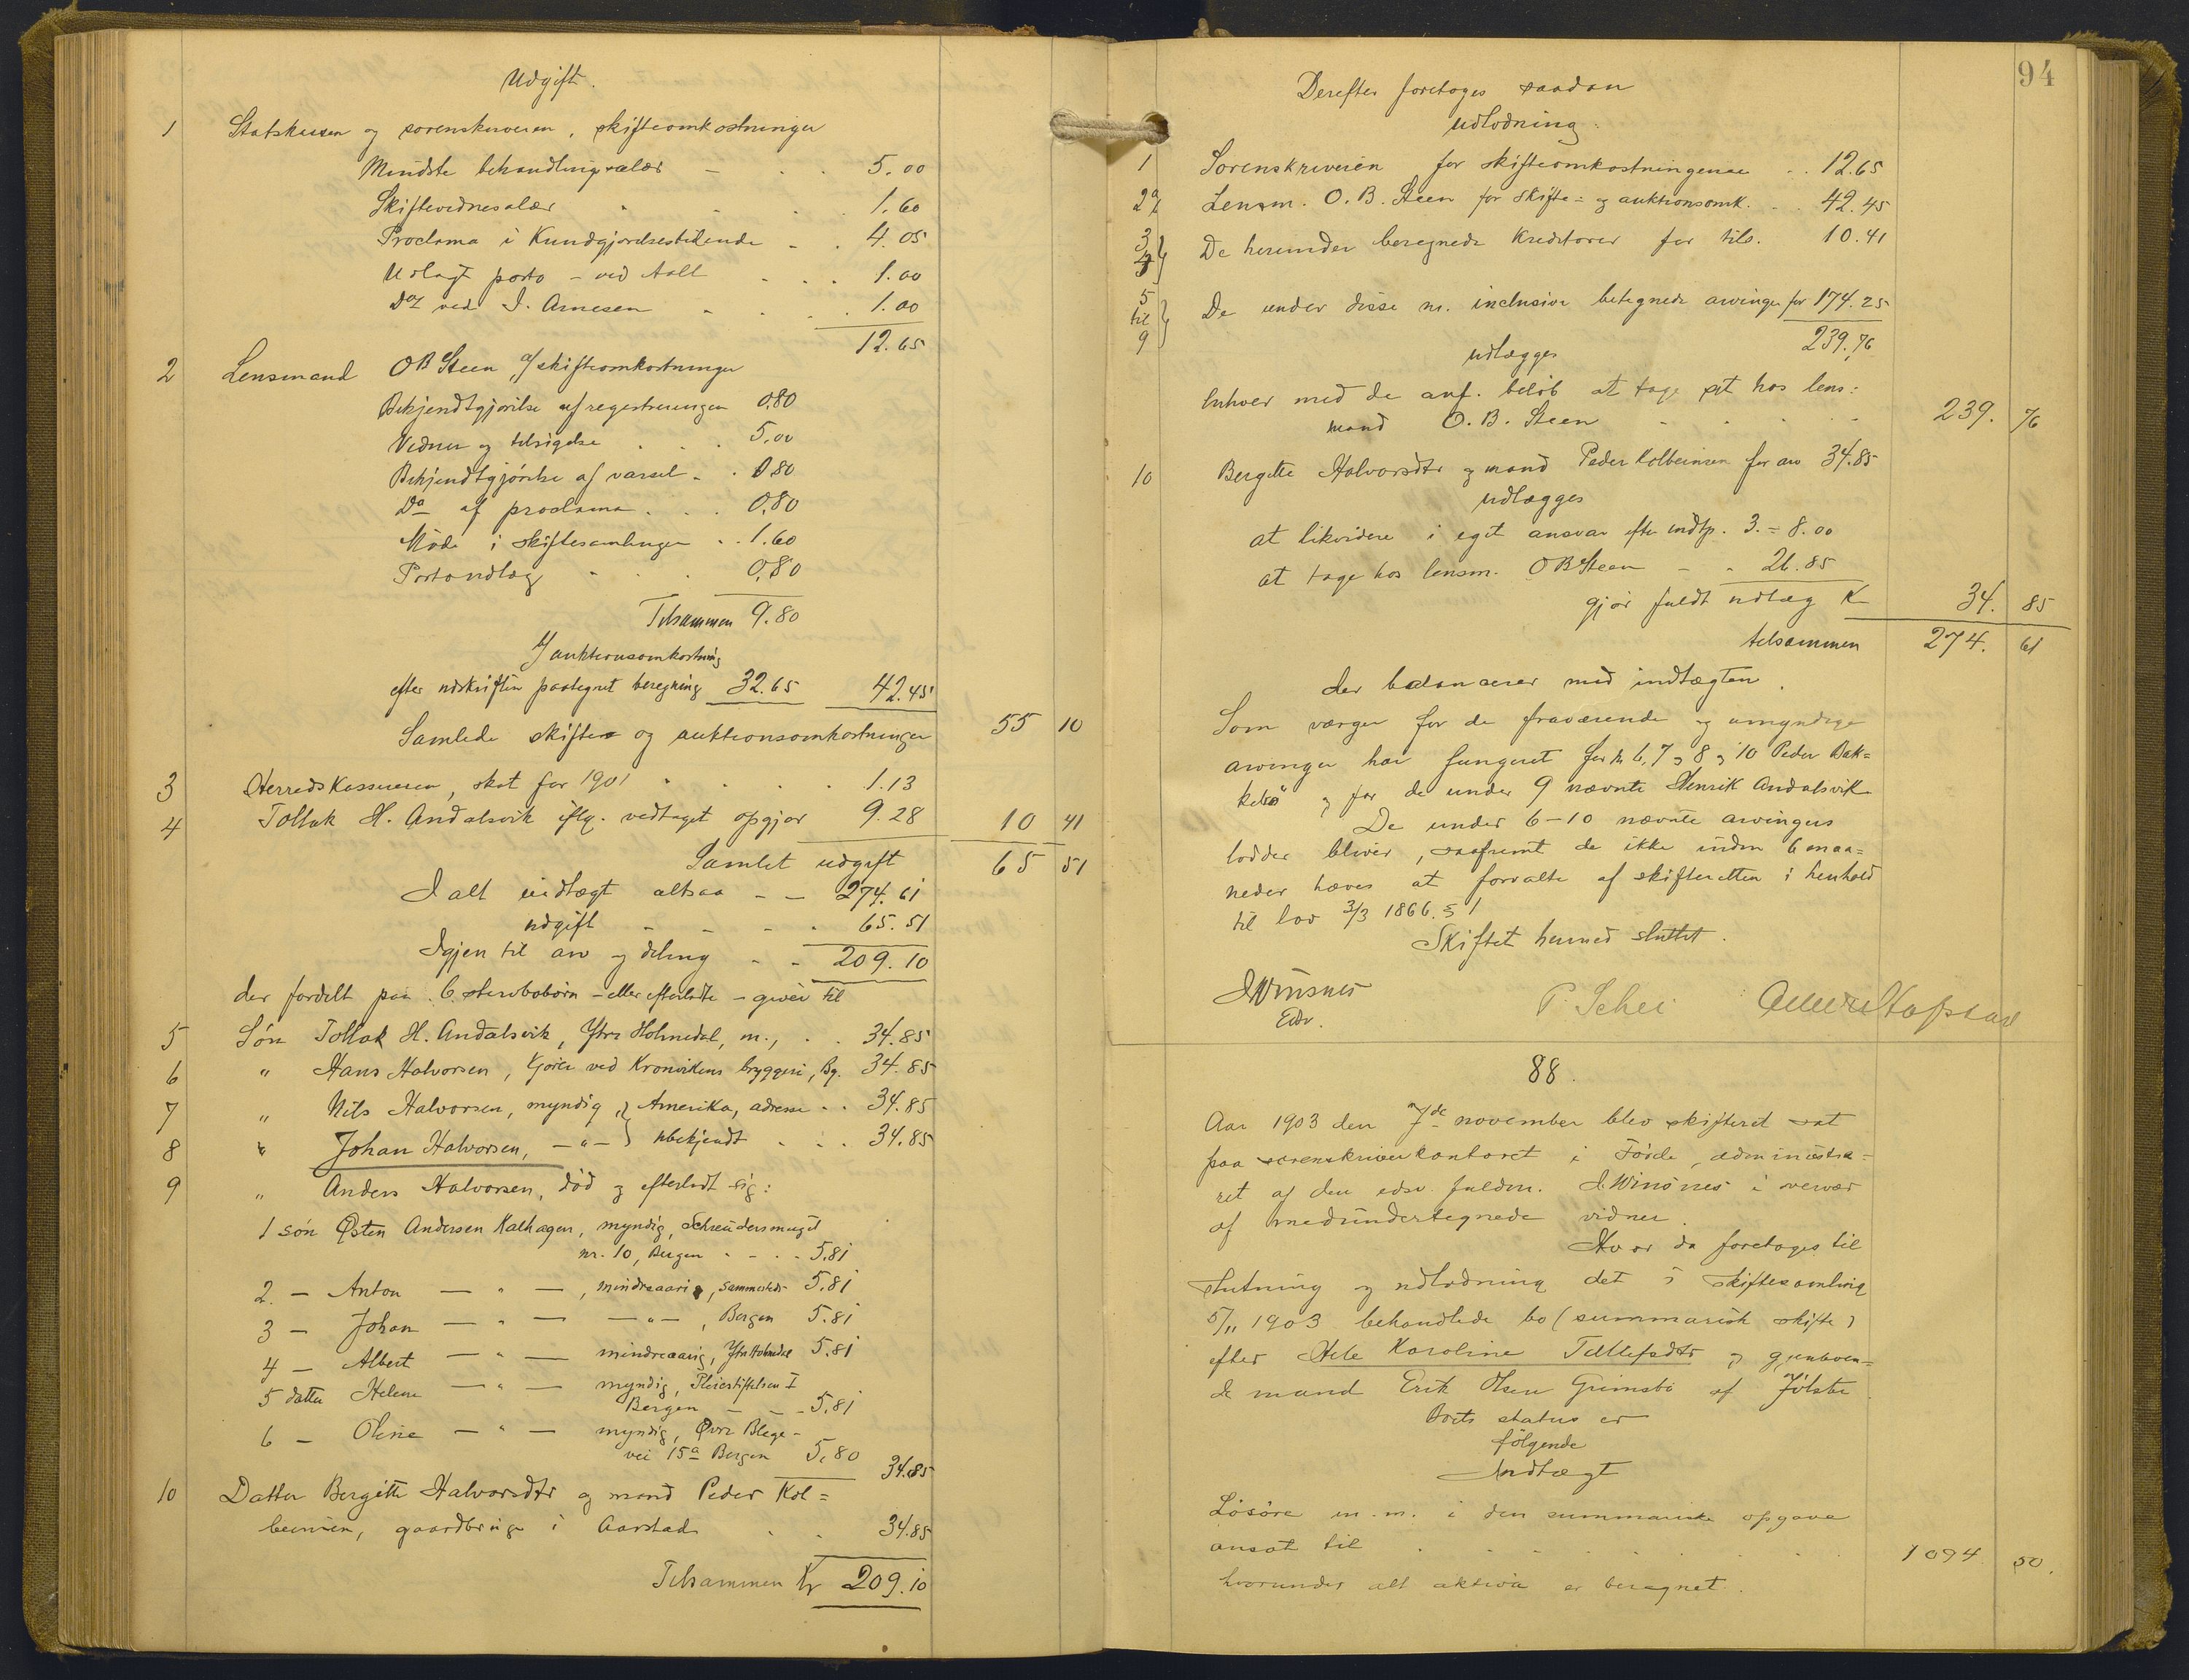 Udgift.
1 Statskassen og sorenskriveren, skifteomkostninger
Mindste behandlingssalær - . . 5.00
Skiftevidnesalær . . . 1.60
Proclama i Kundgjørelsestidende - . 4.05
Udlagt porto - ved Aall . . . 1.00
Do ved I. Arnesen . . . 1.00
12.65
2 Lensmand OB Steen a/ skifteomkostninger
Bekjendtgjørelse af registreringen 0,80
Vidner og tilsigelse . . . 5,00
Bekjendtgjørelse af varsel - . 0,80
Do af proclama . . . 0,80
Møde i skiftesamlingen . . 1.60
Portoudlæg . . . 0,80
Tilsammen 9.80
b/ auktionsomkostning
efter udskriften paategnet beregning 32.65 42.45
Samlede skifte= og auktionsomkostninger 55 10
3 Herredskassereren, skat for 1901 . . . 1.13
4 Tollak H. Andalsvik iflg. vedtaget opgjør 9.28 10 41
Samlet udgift 65 51
I alt indtægt altsaa - - 274.61
udgift - - - . 65.51
Igjen til arv og deling - - 209.10
der fordelt paa 6 stervbobørn - eller efterladte - giver til
5 Søn Tollak H. Andalsvik, Ytre Holmedal, m., . . 34.85
6 " Hans Halvorsen, kjører ved Kronvikens bryggeri, Bg. 34.85
7 " Nils Halvorsen, myndig, } Amerika, adresse . . 34.85
8 " Johan Halvorsen, - " - } ubekjendt . . . 34.85
9 " Anders Halvorsen, død og efterladt sig:
1 søn Østen Andersen Kalhagen, myndig, Schreudersmuget
nr. 10, Bergen - - - . 5.81
2 - Anton - " - , mindreaarig, sammesteds 5.81
3 - Johan - " - - " - , Bergen 5.81
4 - Albert - " - mindreaarig, Ytre Holmedal 5.81
5 datter Helene - " - myndig, Pleiestiftelsen I
Bergen - - - 5.81
6 - Oline - " - myndig, Øvre Blege-
vei 15a Bergen 5.80 34.85
10 Datter Bergitte Halvorsdtr og mand Peder Kol=
beinsen, gaardbruger i Aarstad . . 34.85
Tilsammen Kr 209.10
94
Derefter foretoges saadan
udlodning:
1 Sorenskriveren for skifteomkostningerne . . 12.65
2 Lensm. O. B. Steen for skifte= og auktionsomk. . . 42.45
3
4 } De herunder beregnede kreditorer for tils. 10.41
5
til
9 } De under disse nr. inclusive betegnede arvinger for 174.25
239.76
udlægges
enhver med de anf. beløb at tage sit hos lens=
mand O. B. Steen . . . . 239. 76
10 Bergitte Halvorsdtr og mand Peder Kolbeinsen for arv 34.85
udlægges
at likvidere i eget ansvar efter indtp. 3. = 8.00
at tage hos lensm. OBSteen - - 26.85
gjør fuldt udlæg K 34. 85
tilsammen 274. 61
der balancerer med indtægten.
Som værger for de fraværende og umyndige
arvinger har fungeret for nr 6, 7 og 8 og 10 Peder Bak=
kebø og for de under 9 nævnte Henrik Andalsvik
De under 6-10 nævnte arvingers
lodder bliver, saafremt de ikke inden 6 maa=
neder hæves at forvalte af skifteretten i henhold
til lov 3/3 1866. § 1
Skiftet hermed sluttet.
Winsnes
Edv.
P. Schei
88.
Aar 1903 den 7de november blev skifteret sat
paa sorenskriverkontoret i Førde, administre=
ret af den edsv. fuldm. Winsnes i overvær
af medundertegnede vidner.
Hvor da foretoges til
slutning og udlodning det i skiftesamling
5/11 1903 behandlede bo (summarisk skifte)
efter Karoline Tollefsdtr og gjenleven=
de mand Erik Olsen Grimsbø af Jølster.
Boets status er
følgende
Indtægt
Løsøre m.m. i den summariske opgave
ansat til . . . . . 1094 50.
hvorunder alt aktiva er beregnet.